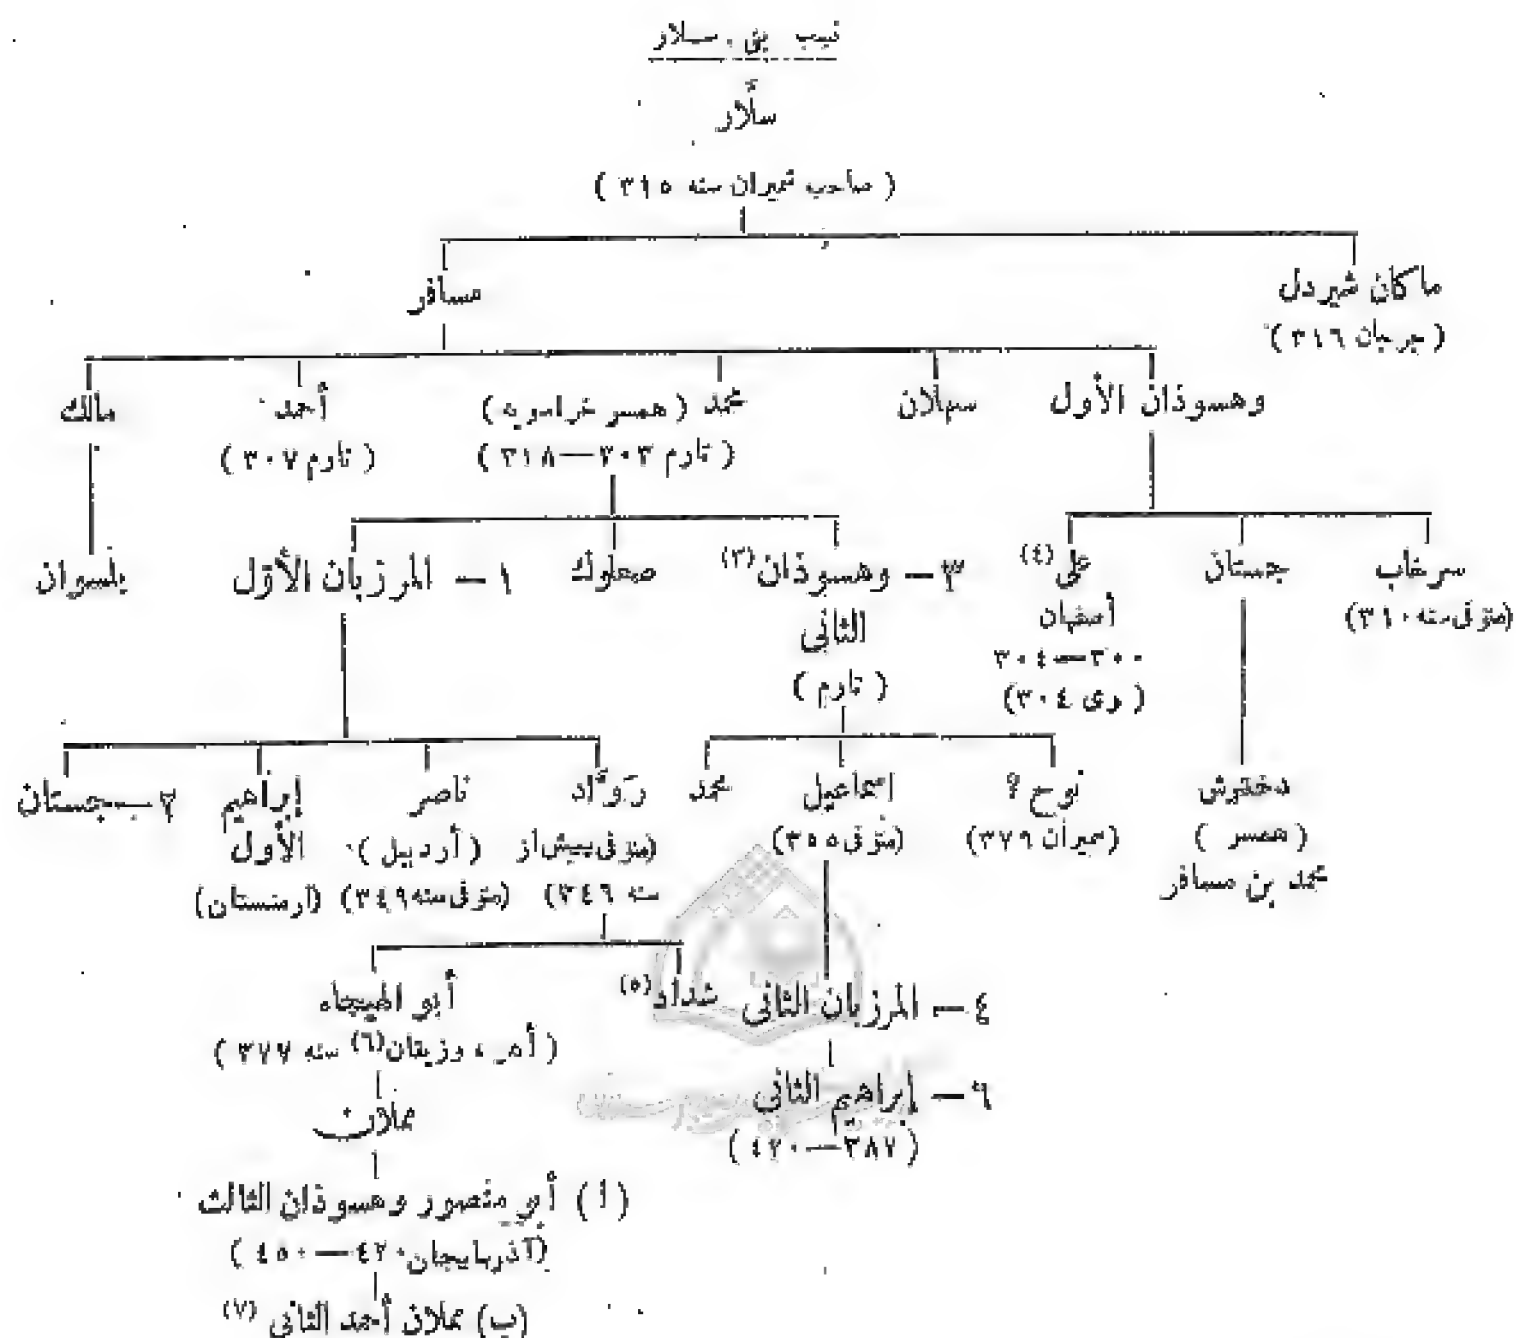 نسب بنى سلار
سلّار
( صاحب شميران سنه ٣١٥ )
ماكان شيردل
( جرجان ٣١٦ )
مسافر
وهسوذان الأول
سهلان
محمد ( همسر خراسويه )
( تارم ٣٠٣—٣١٨ )
أحمد
( تارم ٣٠٧ )
مالك
سرخاب
(متوفى سنه ٣١٠)
جستان
على (٤)
أصفهان
٣٠٠—٣٠٤
( رى ٣٠٤ )
٣ — وهسوذان (٣)
الثانى
( تارم )
صعلوك
١ — المرزبان الأوّل
يلسوان
دختوش
( همسر )
محمد بن مسافر
نوح ؟
(سميران ٣٧٩)
اسماعيل
(متوفى ٣٥٥)
محمد
روّاد
(متوفى پيش از
سنه ٣٤٦)
ناصر
( أردبيل )
(متوفى سنه ٣٤٩)
إبراهيم
الأول
(ارمنستان)
٢ — جستان
٤ — المرزبان الثانى
شداد (٥)
أبو الهيجاء
( أهر ، ورزيقان (٦) سنه ٣٧٧ )
٦ — إبراهيم الثانى
( ٣٨٧—٤٢٠ )
مملان
( ا ) أبو منصور وهسوذان الثالث
( آذربايجان ٤٢٠—٤٥٠ )
(ب) مملان أحمد الثانى (٧)